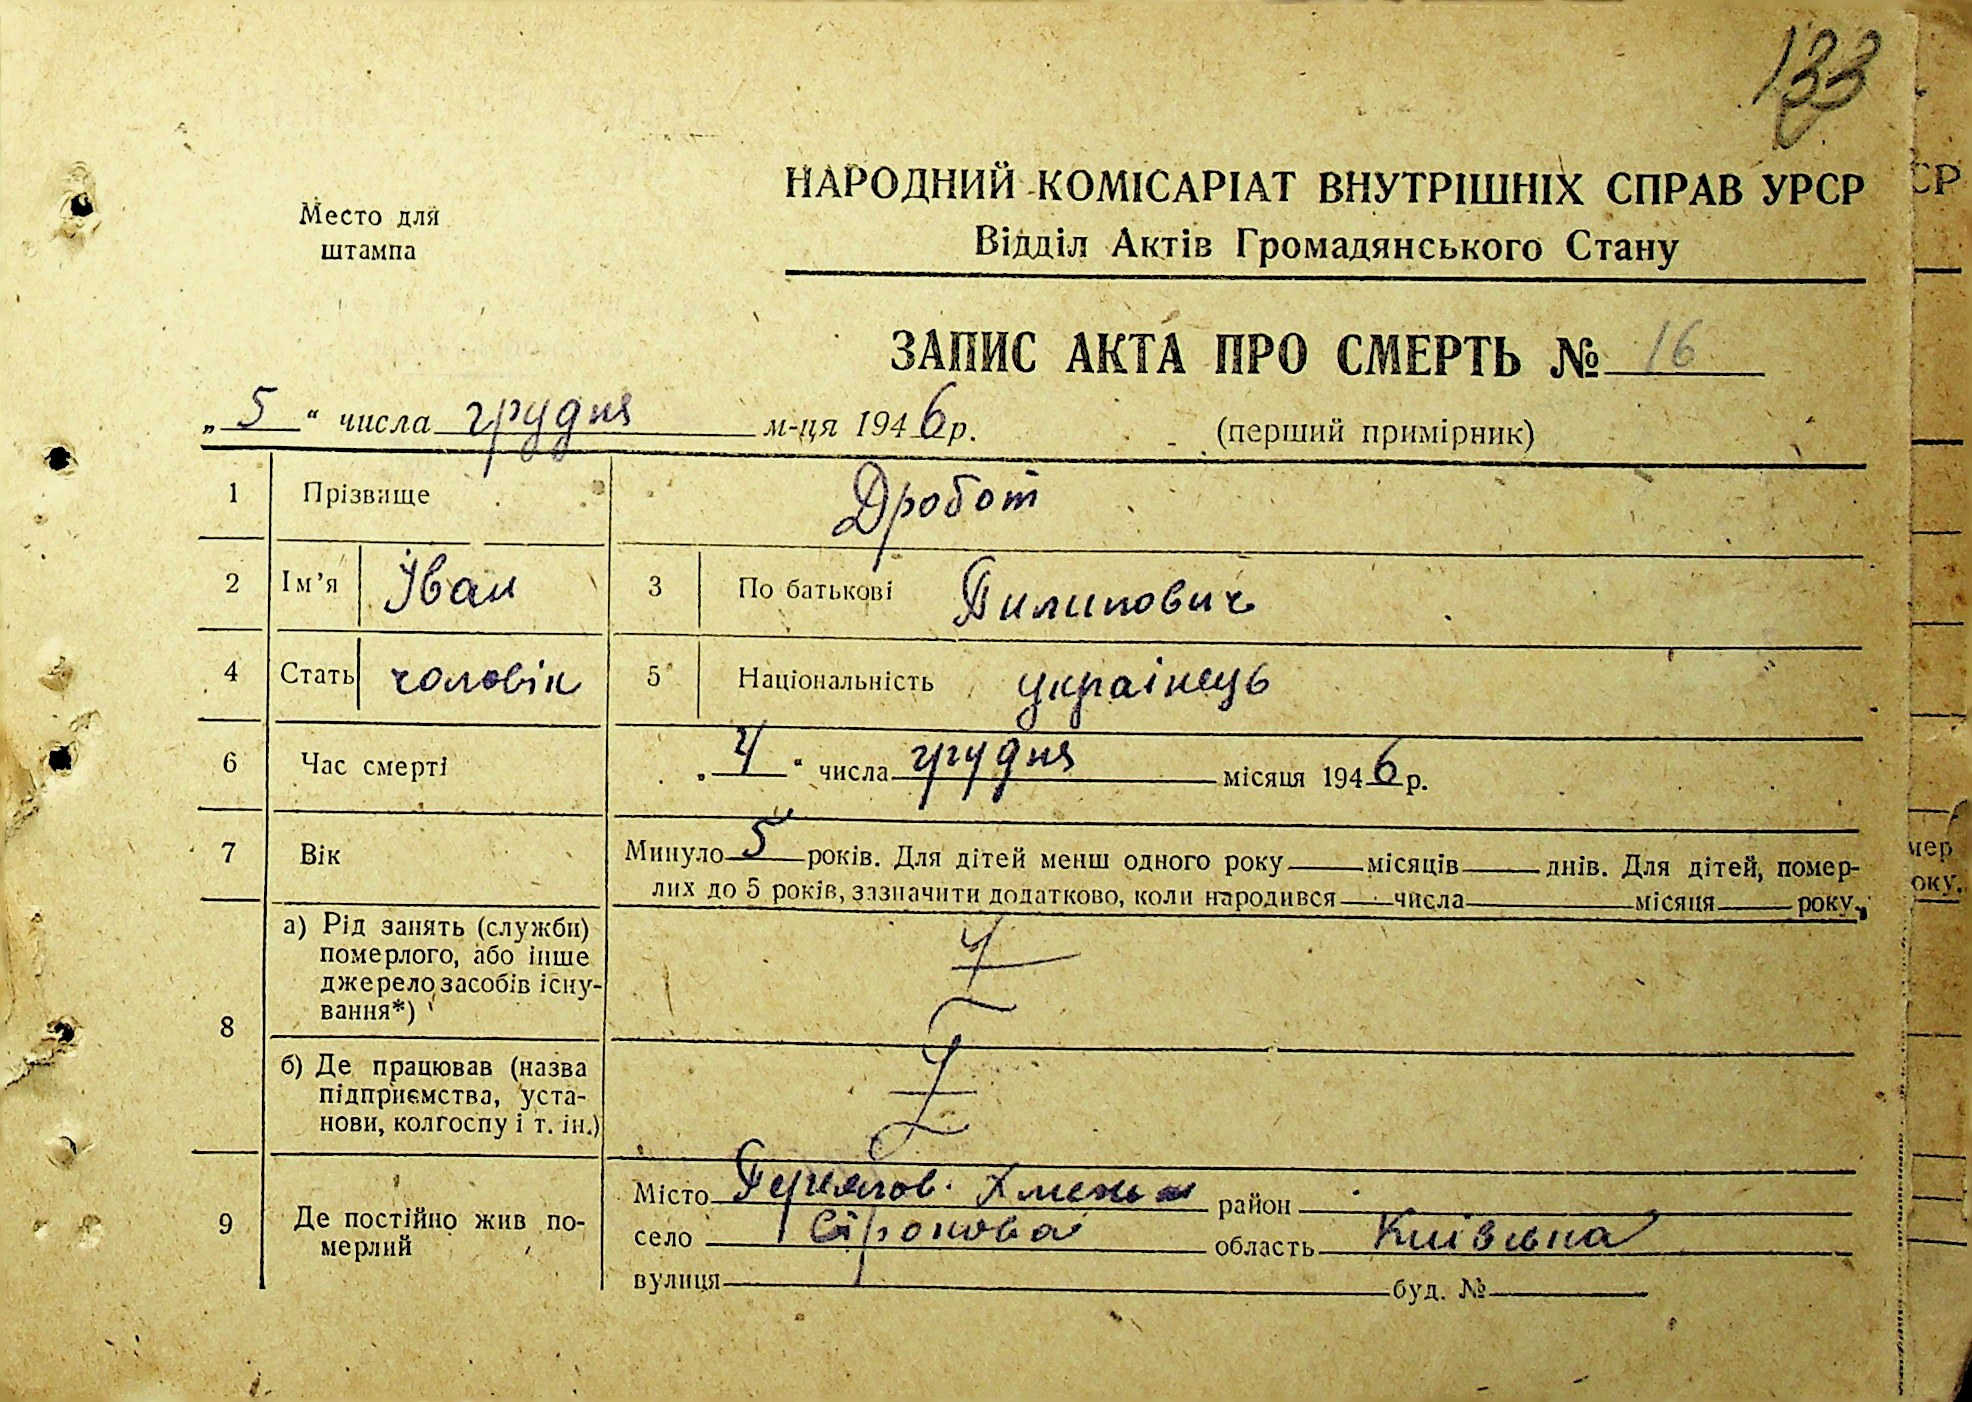 133
Место для
штампа
НАРОДНИЙ КОМІСАРІАТ ВНУТРІШНІХ СПРАВ УРСР
Відділ Актів Громадянського Стану
ЗАПИС АКТА ПРО СМЕРТЬ № 16
„ 5 “ числа грудня м-ця 1946 р. (перший примірник)
1 Прізвище Дробот
2 Ім'я Іван 3 По батькові Пилипович
4 Стать чоловік 5 Національність українець
6 Час смерті „ 4 “ числа грудня місяця 1946 р.
7 Вік Минуло 5 років. Для дітей менш одного року місяців днів. Для дітей, помер-
лих до 5 років, зазначити додатково, коли народився числа місяця року.
8 а) Рід занять (служби)
померлого, або інше
джерело засобів існу-
вання*)
б) Де працював (назва
підприємства, уста-
нови, колгоспу і т. ін.)
9 Де постійно жив по-
мерлий
Місто район
село область Київська
вулиця буд. №
СР
мер
оку.